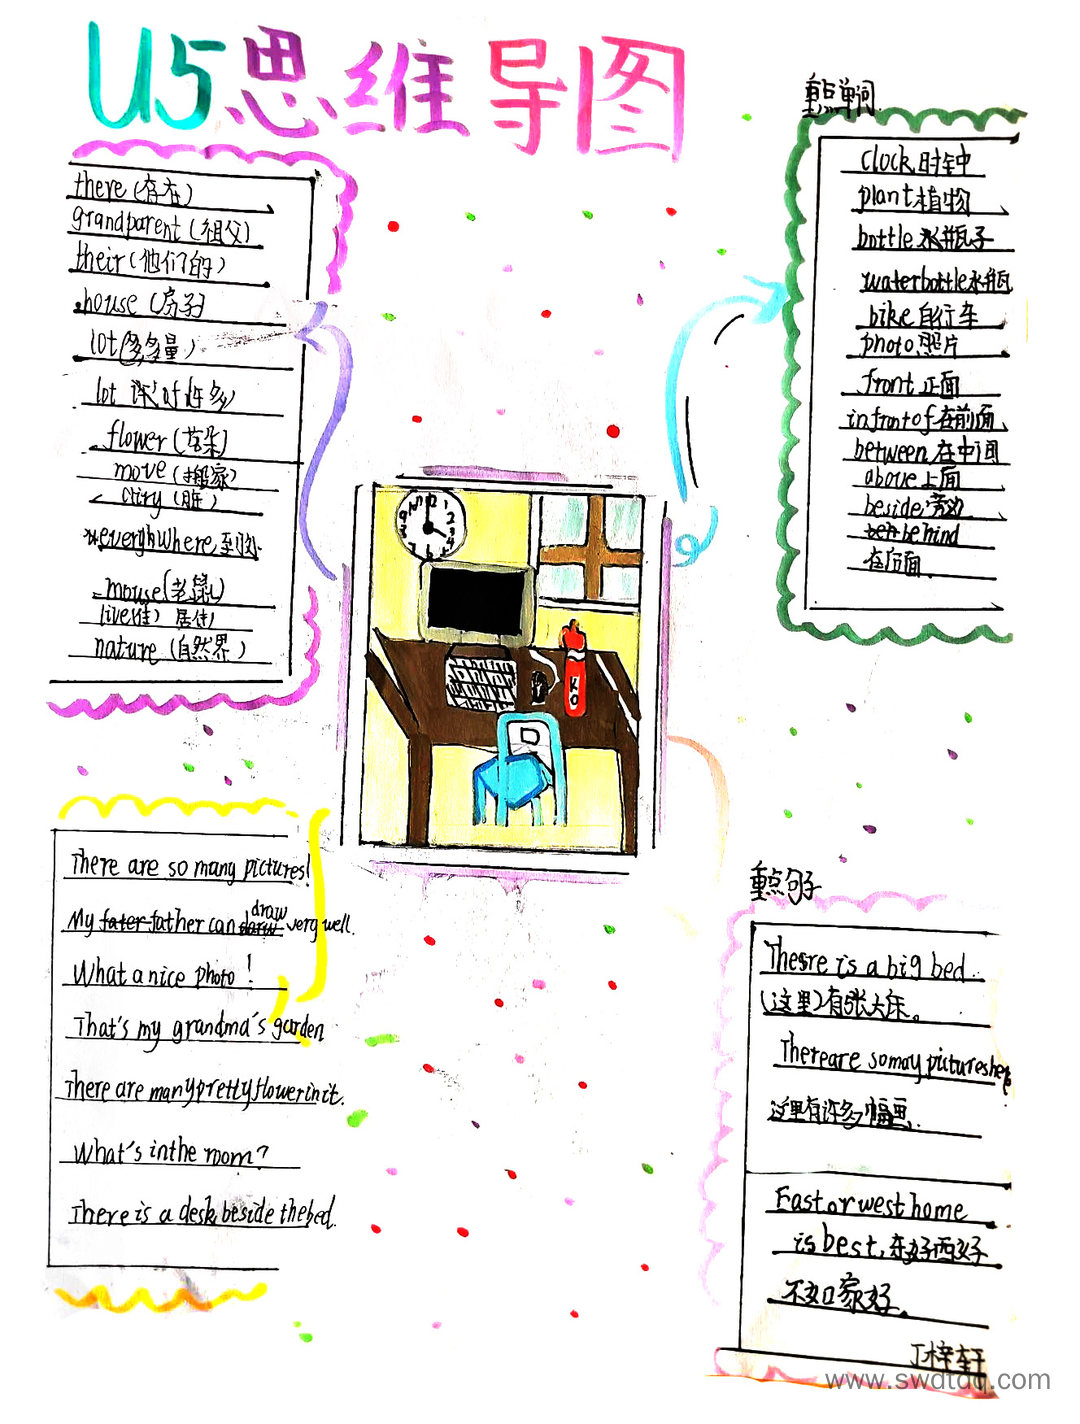 U5思维导图
there (存在)
grandparent (祖父)
their (他们的)
house (房子)
lot (多多量)
lot 许多
flower (花朵)
move (搬家)
(脏)
everghwhere 到处
mouse (老鼠)
live(住) 居住
nature (自然界)
重点单词
clock 时钟
plant 植物
bottle 水瓶子
waterbottle 水瓶
bike 自行车
photo 照片
front 正面
infrontof 在前面
between 在中间
above 上面
beside 旁边
behind
在后面
12 1 2 3 4 6 9 10 11
KO
There are so many pictures!
My fater father can draw very well.
What a nice photo!
That's my grandma's garden
There are many pretty flower in it.
What's in the room?
There is a desk beside the bed.
重点句子
There is a big bed.
(这里)有张大床。
There are so may pictures here
这里有许多幅画.
East or west home
is best, 东好西好
不如家好.
丁梓轩
www.swdtdq.com